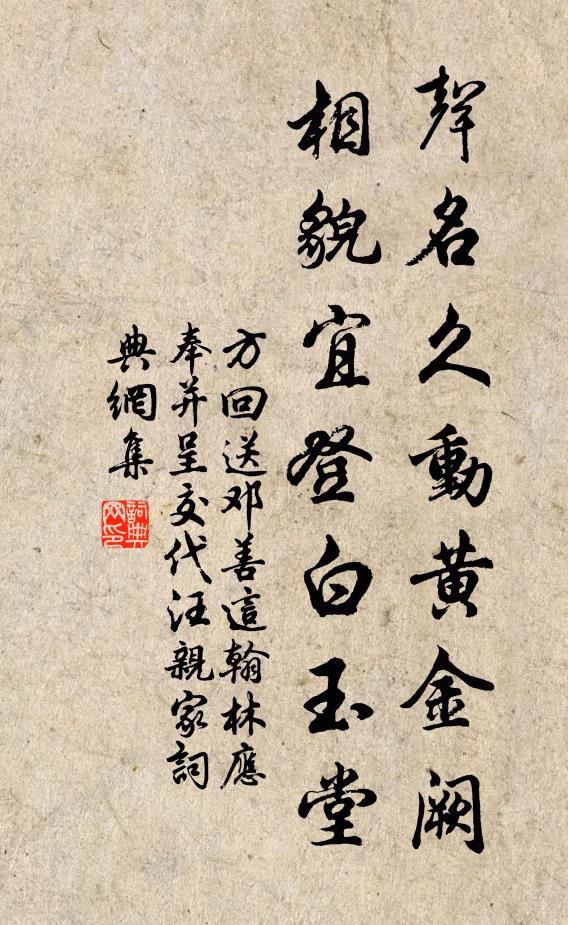 聲名久動黄金阙
相貌宜登白玉堂
方回送邓善這翰林應
奉并呈交代汪親家詞
典網集
詞典网印